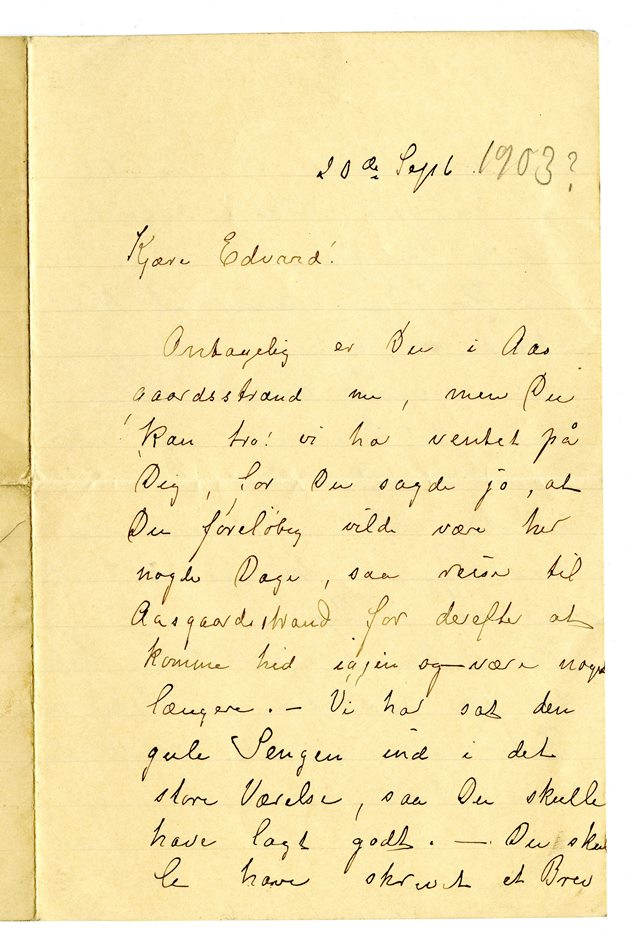 20de Sept 1903?
Kjære Edvard!
Antagelig er Du i Aas
gaardsstrand nu, men Du
kan tro! vi ha ventet på
Dig, for Du sagde jo, at
Du foreløbig vilde være her
nogle Dage, saa reise til
Aasgaardsstrand for derefter at
komme hid igjen og være noget
længere. – Vi har sat den
gule Sengen ind i det
store Værelse, saa Du skulle
have lagt godt. – Du skul
le have skrevet et Brev